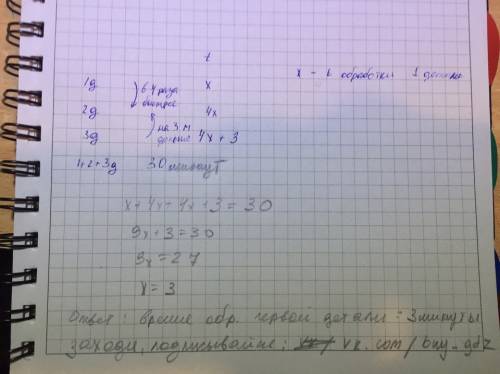 t
x - t обработки 1 детали
1д в 4 раза x
быстрее
2д 4x
на 3 м
дольше
3д 4x + 3
1+2+3д 30 минут
x+4x+4x+3=30
9x+3=30
9x=27
x=3
Ответ: время обр. первой детали = 3 минуты
заходи, подписывайте: vk.com/